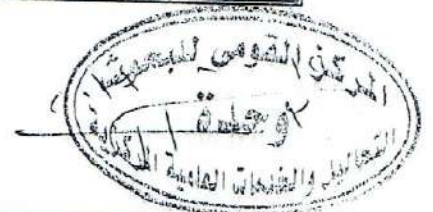 المركز القومى للبحوث
وحدة
التحاليل والخدمات العلمية